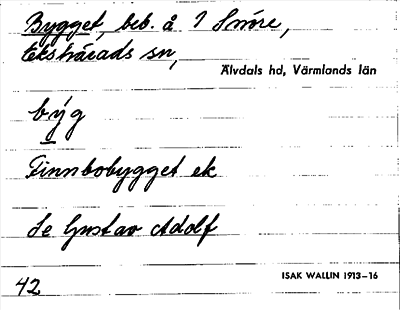 Bygget, beb. å 1 Snöre,
Ekshärads sn,
Älvdals hd, Värmlands län
býg
Finnbobygget ek
Se Gustav Adolf
42
ISAK WALLIN 1913-16